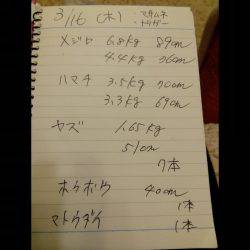 3/16 (木)
・マサムネ
・トリガー
メジロ 6.8kg 89cm
4.4kg 76cm
ハマチ 3.5kg 70cm
3.3kg 69cm
ヤズ 1.65kg
51cm
7本
ホウボウ 40cm
1本
マトウダイ 1本